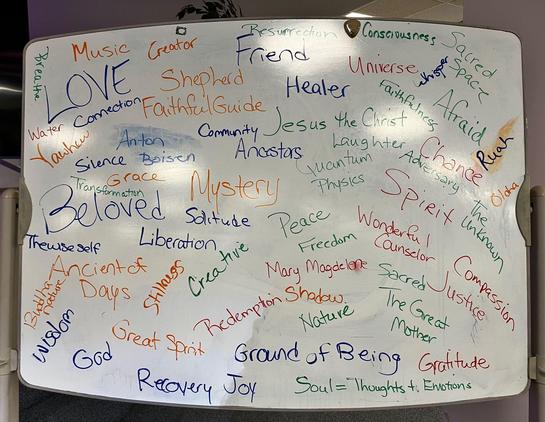 Resurrection
Consciousness
Sacred
Space
Music
Creator
Friend
Breathe
Universe
whisper
LOVE
Shepherd
Healer
Faithfulness
Afraid
Connection
Faithful Guide
Water
Yahweh
Anton
Boisen
Community
Jesus the Christ
Ancestors
Laughter
Chance
Ruah
Silence
Quantum
Physics
Adversary
Grace
Transformation
Mystery
Spirit
Beloved
Solitude
Peace
The
Unknown
Wonderful
Counselor
Thewiseself
Liberation
Freedom
Creative
Ancient of
Days
Stillness
Mary Magdelene
Sacred
Compassion
Justice
Buddha
nature
Redemption
Shadow
The Great
Mother
Wisdom
Nature
Great Spirit
God
Ground of Being
Gratitude
Recovery
Joy
Soul = Thoughts + Emotions